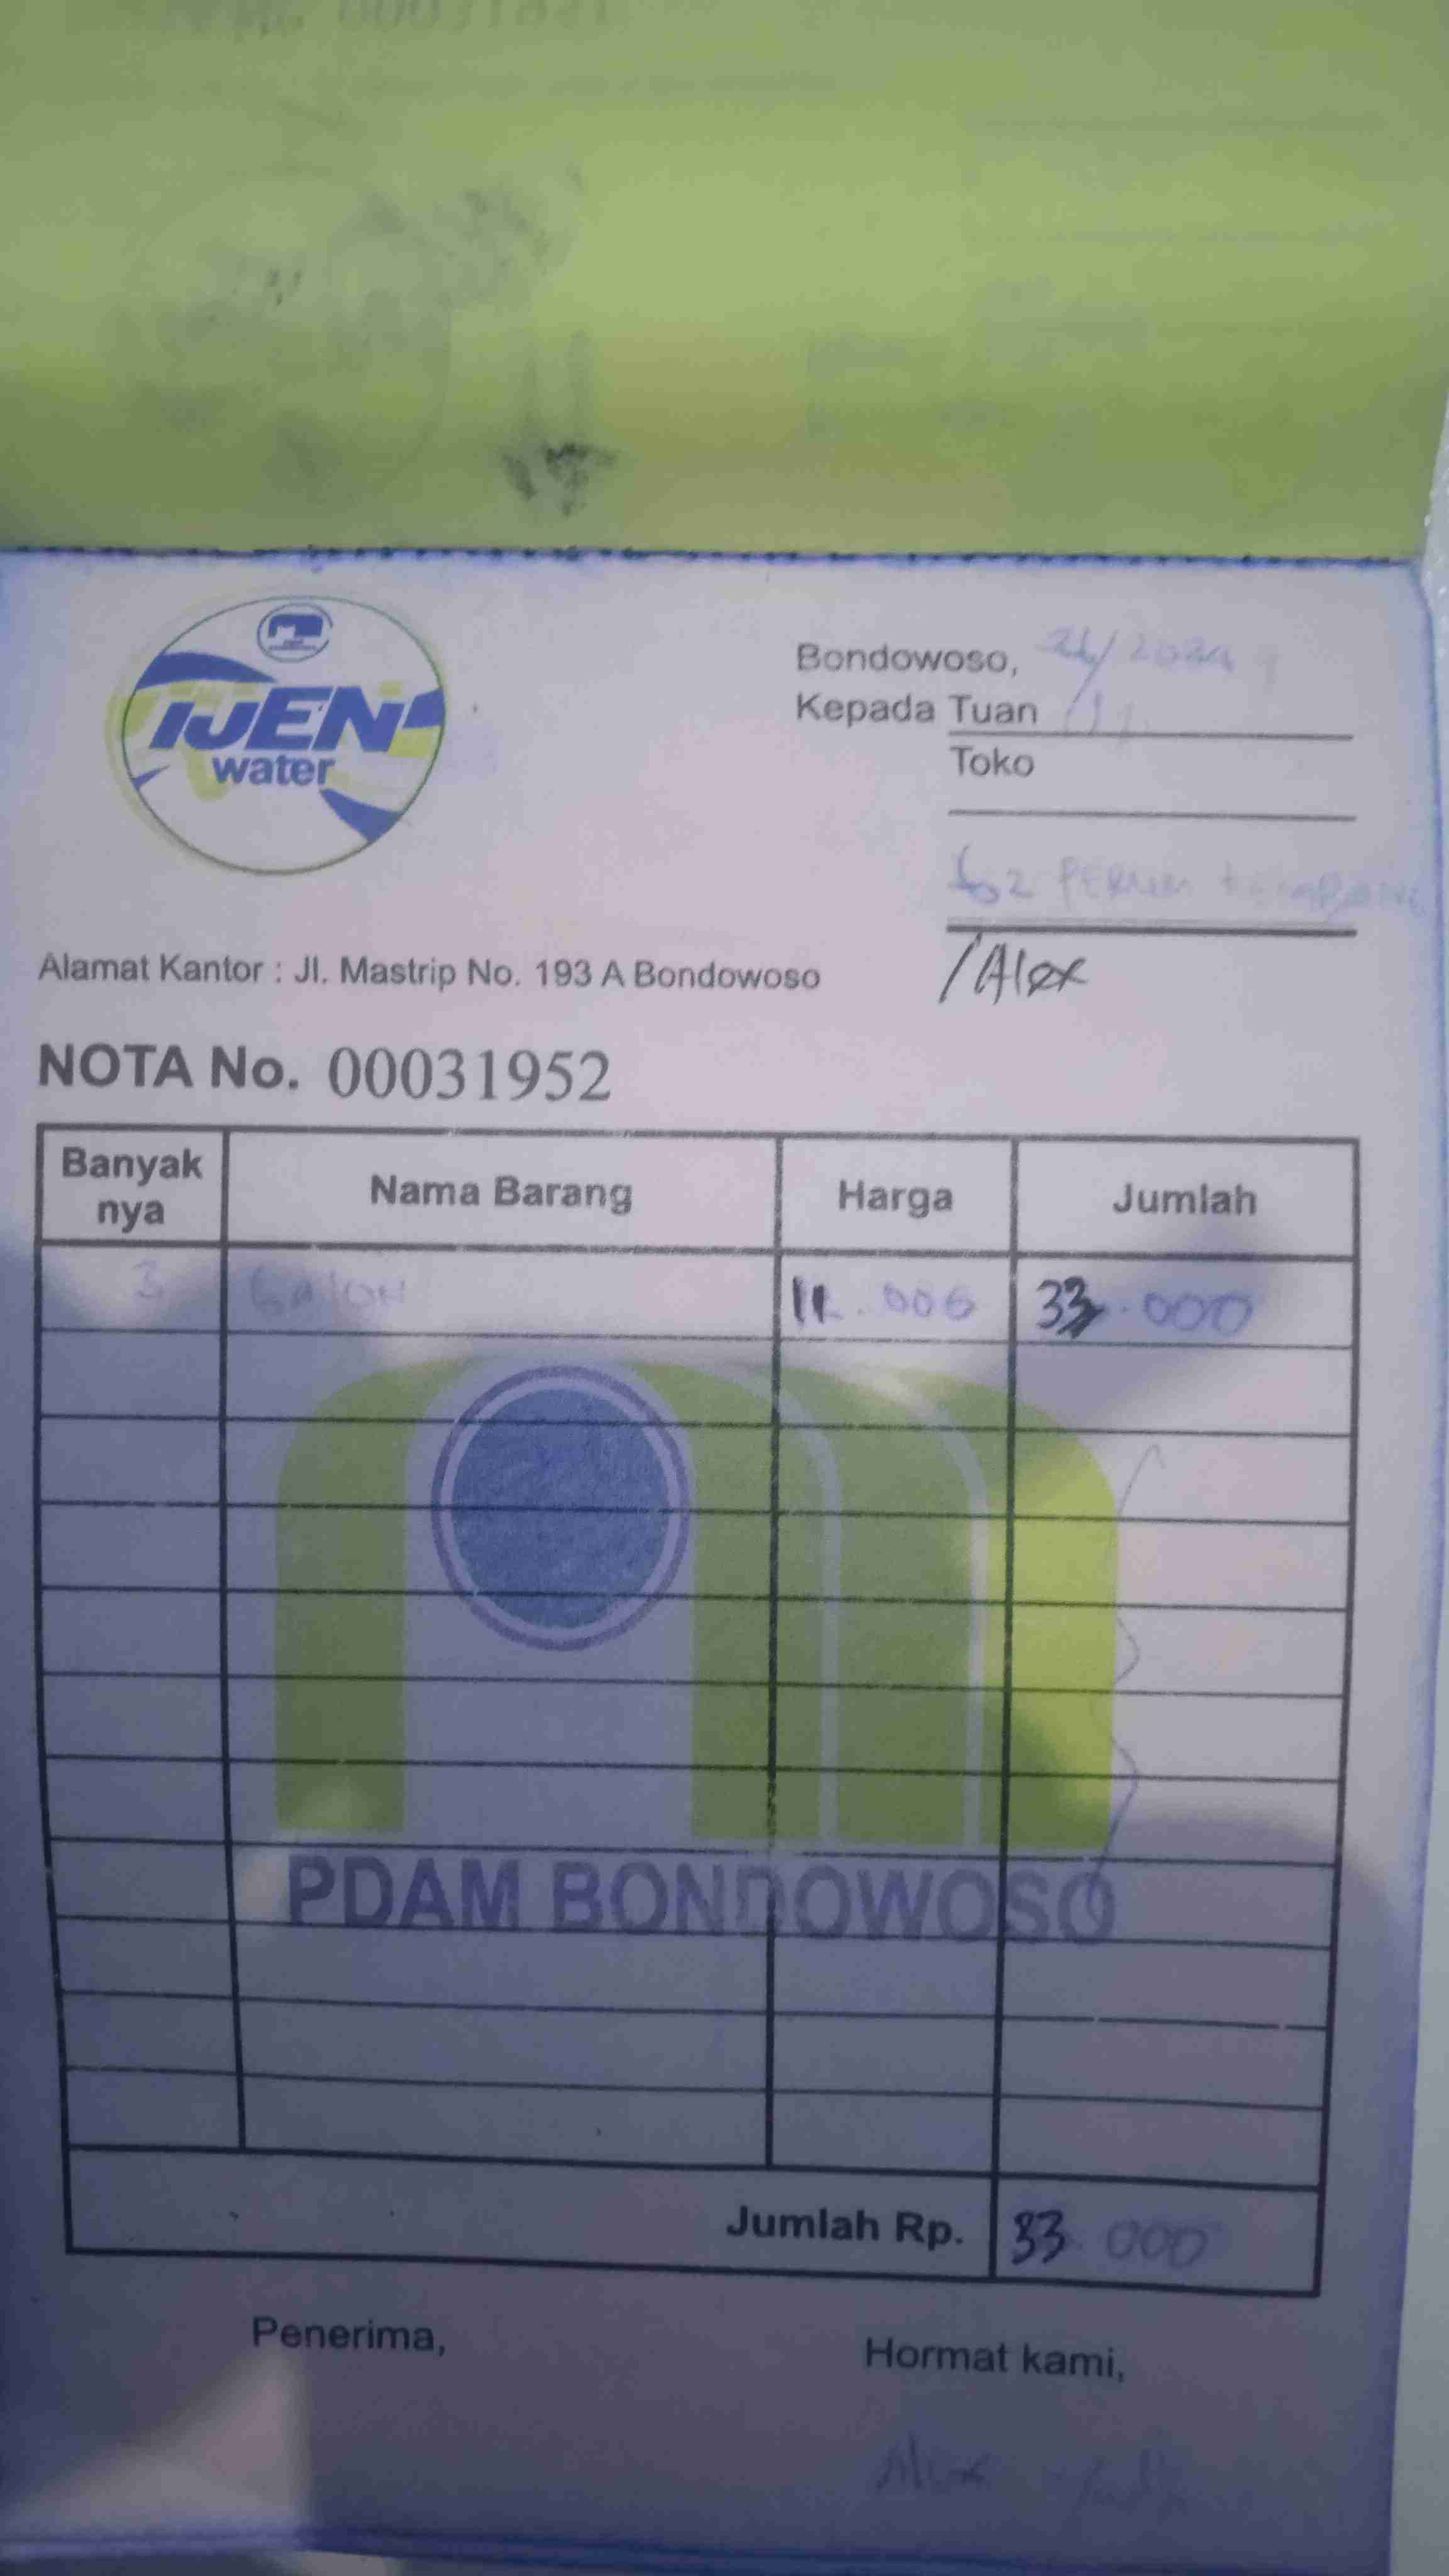 IJEN
water
Bondowoso, 2024
Kepada Tuan
Toko
/Alex
Alamat Kantor : Jl. Mastrip No. 193 A Bondowoso
NOTA No. 00031952
Banyak nya Nama Barang Harga Jumlah
3 Galon 11.000 33.000
PDAM BONDOWOSO
Jumlah Rp. 33 000
Penerima, Hormat kami,
Alex